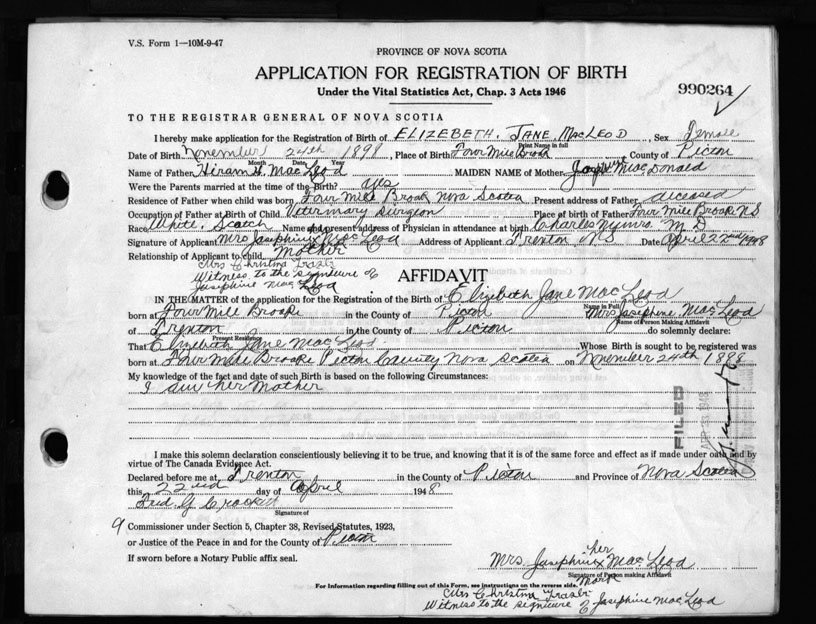 V.S. Form 1—10M-9-47
PROVINCE OF NOVA SCOTIA
APPLICATION FOR REGISTRATION OF BIRTH
Under the Vital Statistics Act, Chap. 3 Acts 1946
990264
TO THE REGISTRAR GENERAL OF NOVA SCOTIA
I hereby make application for the Registration of Birth of ELIZEBETH. JANE MACLEOD, Sex Female
Print Name in full
Date of Birth November 24th 1898, Place of Birth Four Mile Brook County of Picton
Month Day Year
Name of Father Hiram H. MacLeod MAIDEN NAME of Mother MacDonald
Were the Parents married at the time of the Birth? yes
Residence of Father when child was born Four Mile Brook Nova Scotia Present address of Father deceased
Occupation of Father at Birth of Child Veterinary Surgeon Place of birth of Father Four Mile Brook N S
Race White. Scotch and present address of Physician in attendance at birth Charles M D
Signature of Applicant Mrs Josephine X MacLeod Address of Applicant Trenton N S Date April 22nd 1948
Relationship of Applicant to child Mother
Mrs Christina Fraser
Witness to the signature of
Josephine MacLeod
AFFIDAVIT
IN THE MATTER of the application for the Registration of the Birth of Elizebeth Jane MacLeod
Name in Full
born at Four Mile Brooke in the County of Picton Mrs Josephine MacLeod
Name of Person Making Affidavit
of Trenton in the County of Picton do solemnly declare:
Present Residence
That Elizabeth Jane MacLeod Whose Birth is sought to be registered was
born at Four Mile Brooke Picton County Nova Scotia on November 24th 1898
My knowledge of the fact and date of such Birth is based on the following Circumstances:
I am her Mother
FILED
I make this solemn declaration conscientiously believing it to be true, and knowing that it is of the same force and effect as if made under oath and by
virtue of The Canada Evidence Act.
Declared before me at Trenton in the County of Picton and Province of Nova Scotia
this 22nd day of April 1948
Signature of
Commissioner under Section 5, Chapter 38, Revised Statutes, 1923,
or Justice of the Peace in and for the County of Picton
If sworn before a Notary Public affix seal.
her
Mrs. Josephine X MacLeod
Signature of Person making Affidavit
Mark
For Information regarding filling out of this Form, see instructions on the reverse side.
Mrs Christina Fraser
Witness to the signature of Josephine MacLeod